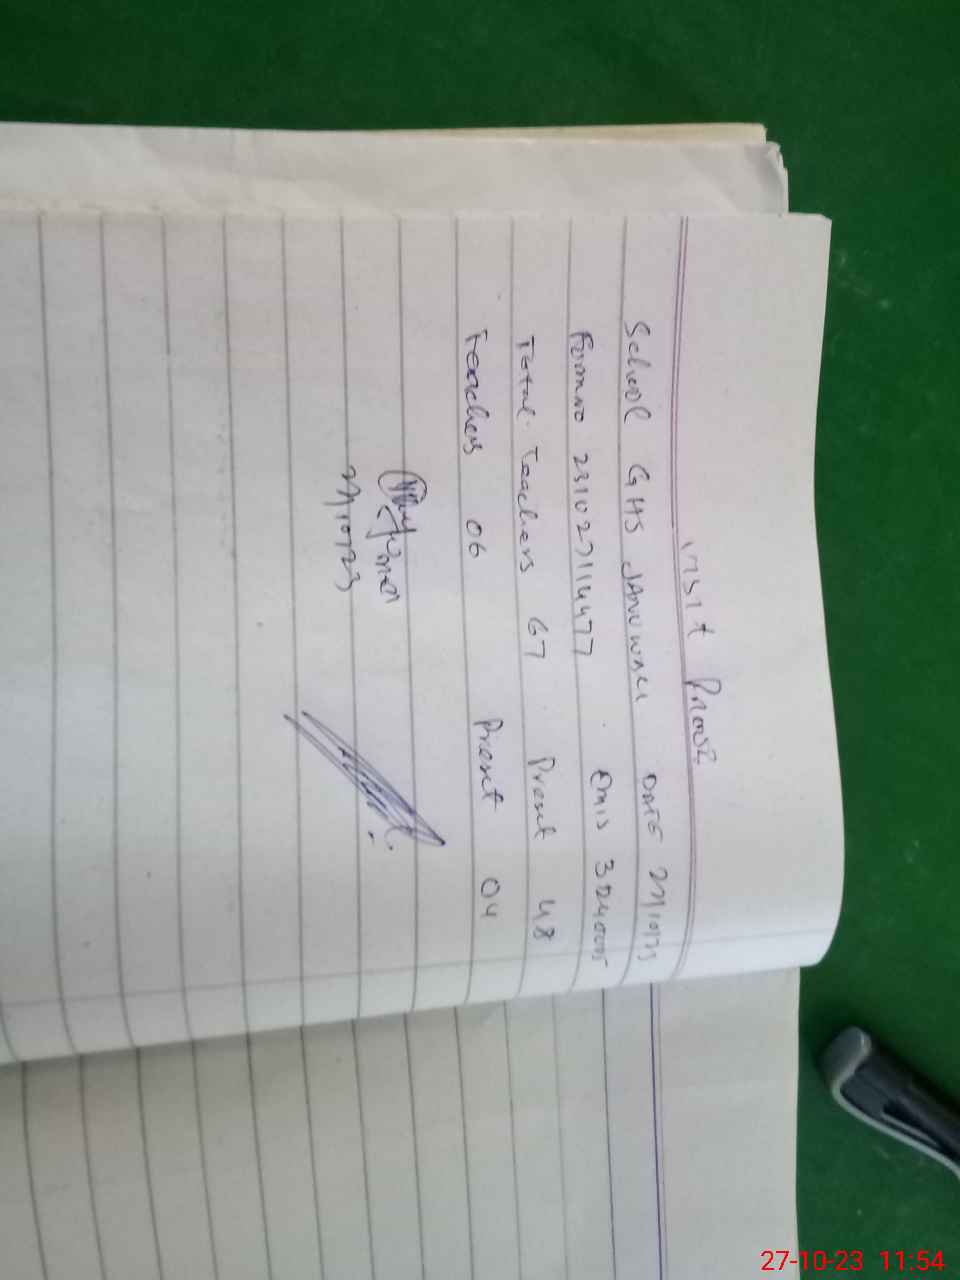 Visit Proof
School GHS JANUWALI DATE 27/10/23
Formno 231027114477 Emis 31240005
Total Teachers 67 Present 48
Teachers 06 Present 04
27/10/23
27-10-23 11:54